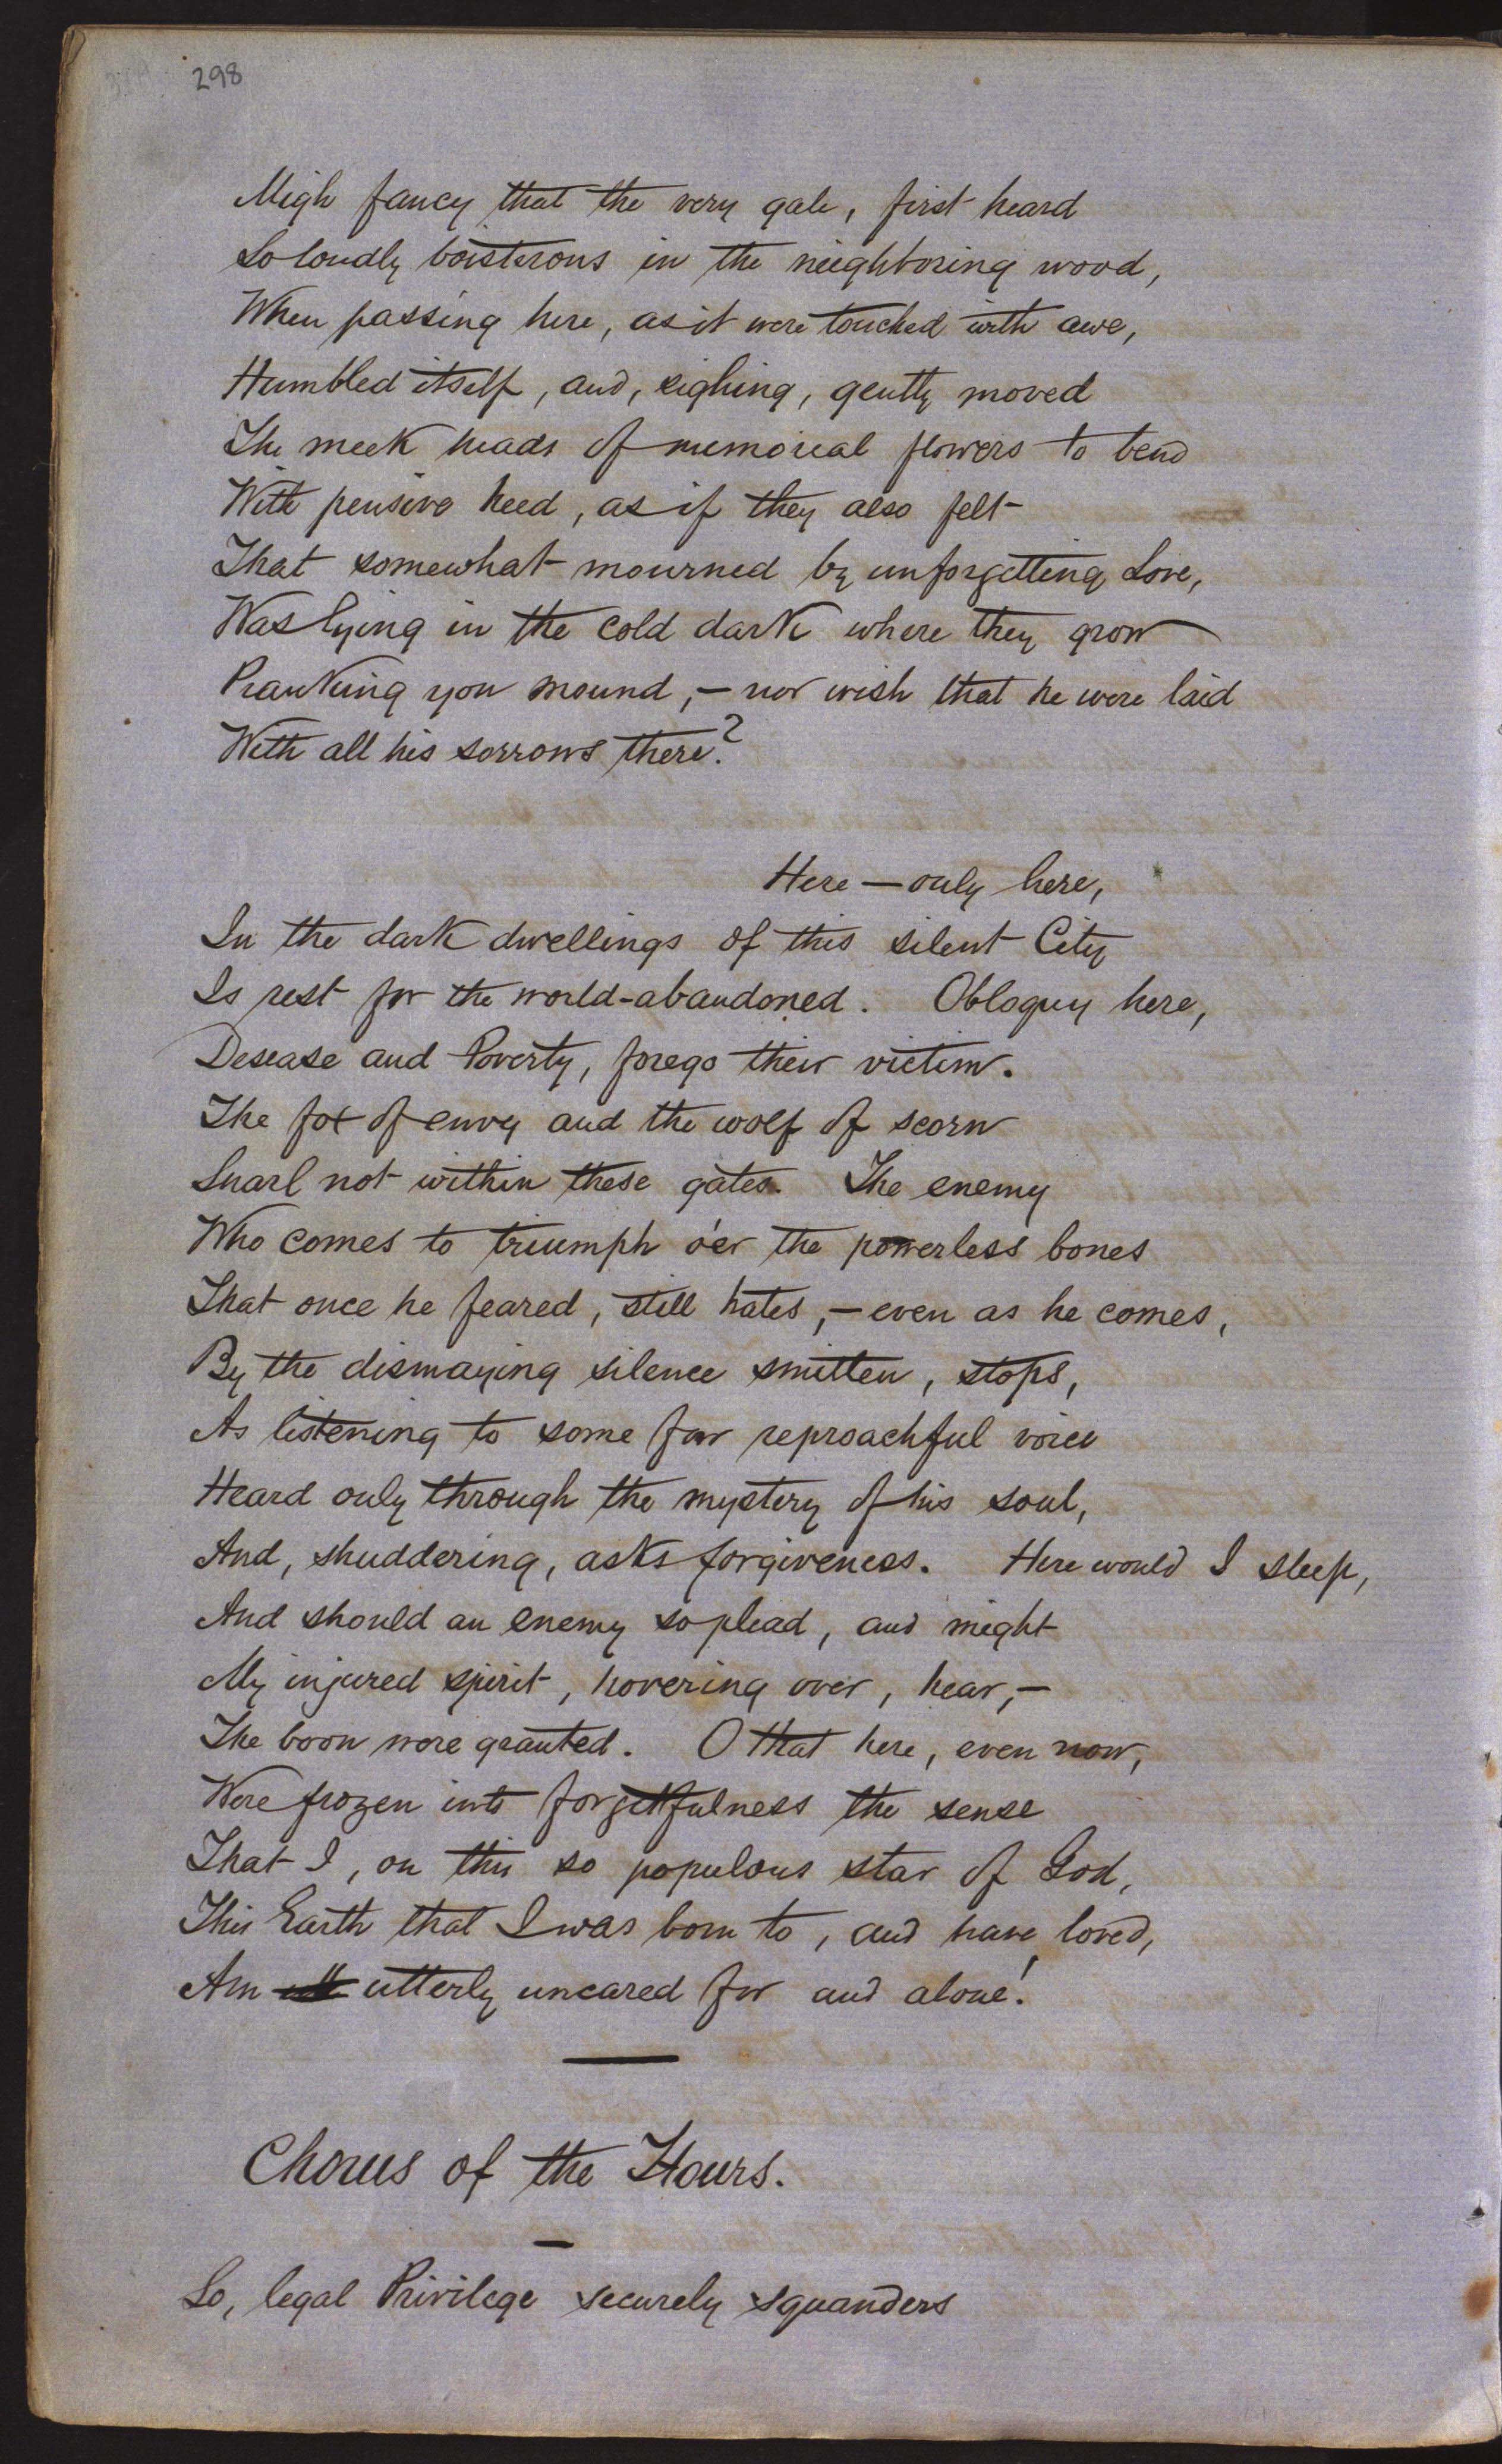 298
Migh fancy that the very gale, first heard
So loudly boisterous in the neighboring wood,
When passing here, as it were touched with awe,
Humbled itself, and, sighing, gently moved
The meek heads of memorial flowers to bend
With pensive heed, as if they also felt
That somewhat mourned by unforgetting Love,
Was lying in the cold dark where they grow
Pranking yon mound,—nor wish that he were laid
With all his sorrows there?
Here—only here,
In the dark dwellings of this silent City
Is rest for the world-abandoned. Obloquy here,
Desease and Poverty, forego their victim.
The fox of envy and the wolf of scorn
Snarl not within these gates. The enemy
Who comes to triumph o'er the powerless bones
That once he feared, still hates,—even as he comes,
By the dismaying silence smitten, stops,
As listening to some far reproachful voice
Heard only through the mystery of his soul,
And, shuddering, asks forgiveness. Here would I sleep,
And should an enemy so plead, and might
My injured spirit, hovering over, hear,—
The boon were granted. O that here, even now,
Were frozen into forgetfulness the sense
That I, on this so populous star of God,
This Earth that I was born to, and have loved,
Am utterly uncared for and alone!
Chorus of the Hours.
So, legal Privilege securely squanders